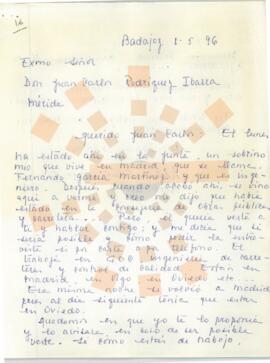 16
Badajoz 1-5-96
Exmo Señor
Don Juan Carlos Rodriguez Ibarra
Mérida
Querido Juan Carlos: El lunes
ha estado ahí en la Junta, un sobrino
mio que vive en Madrid, que se llama
Fernando García Martinez y que es inge-
niero. Después, cuando acabó ahí, se vino
aquí a vernos, pero me dijo que había
estado en la Consejería de obras públicas
y Pero él quería verte a
ti y hablar contigo; y me decía que si
sería posible y cómo pedir la entre-
vista si por carta o por teléfono. El
trabaja en de carre-
teras, y controles de calidad. Están en
Madrid, en Lugo en Oviedo etc...
Esa misma noche se volvió a Madrid
pues al día siguiente tenía que estar
en Oviedo.
Quedamos en que yo te lo proponía
y lo avisaba en caso de ser posible
verte. Si como estás de trabajo,